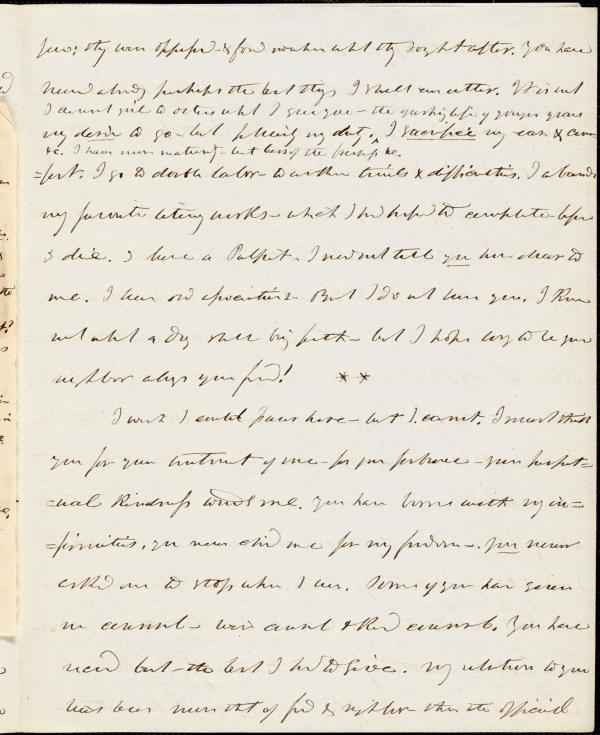 few; they were opposed - & found no when what they sought after. You have
heard already perhaps the best things I shall ever utter. It is not
I cannot give to others what I give you - the gushing life of younger years
my desire to go - but plainly my duty. I sacrifice my ease & com
&c. I have more maturity - but less of the freshness &c.
=fort. I go to double labor - to other trials & difficulties. I abandon
my favorite literary works - which I had hoped to complete before
I die. I leave a Pulpit - I need not tell you how dear to
me. I leave old associations - But I do not leave you. I know
not what a day shall bring forth - but I hope long to be your
neighbor always your friend! **
I wish I could pause here - but I cannot. I must thank
you for your treatment of me - for your forbearance - your perpet=
=ual kindness towards me. You have borne with my in=
=firmities. you never chid me for my freedom - you never
asked me to stop when I was. Some of you have given
me counsel - wise counsel & kind counsel. You have
heard but - the best I had to give. My relation to you
has been more that of friend & neighbor - than the official